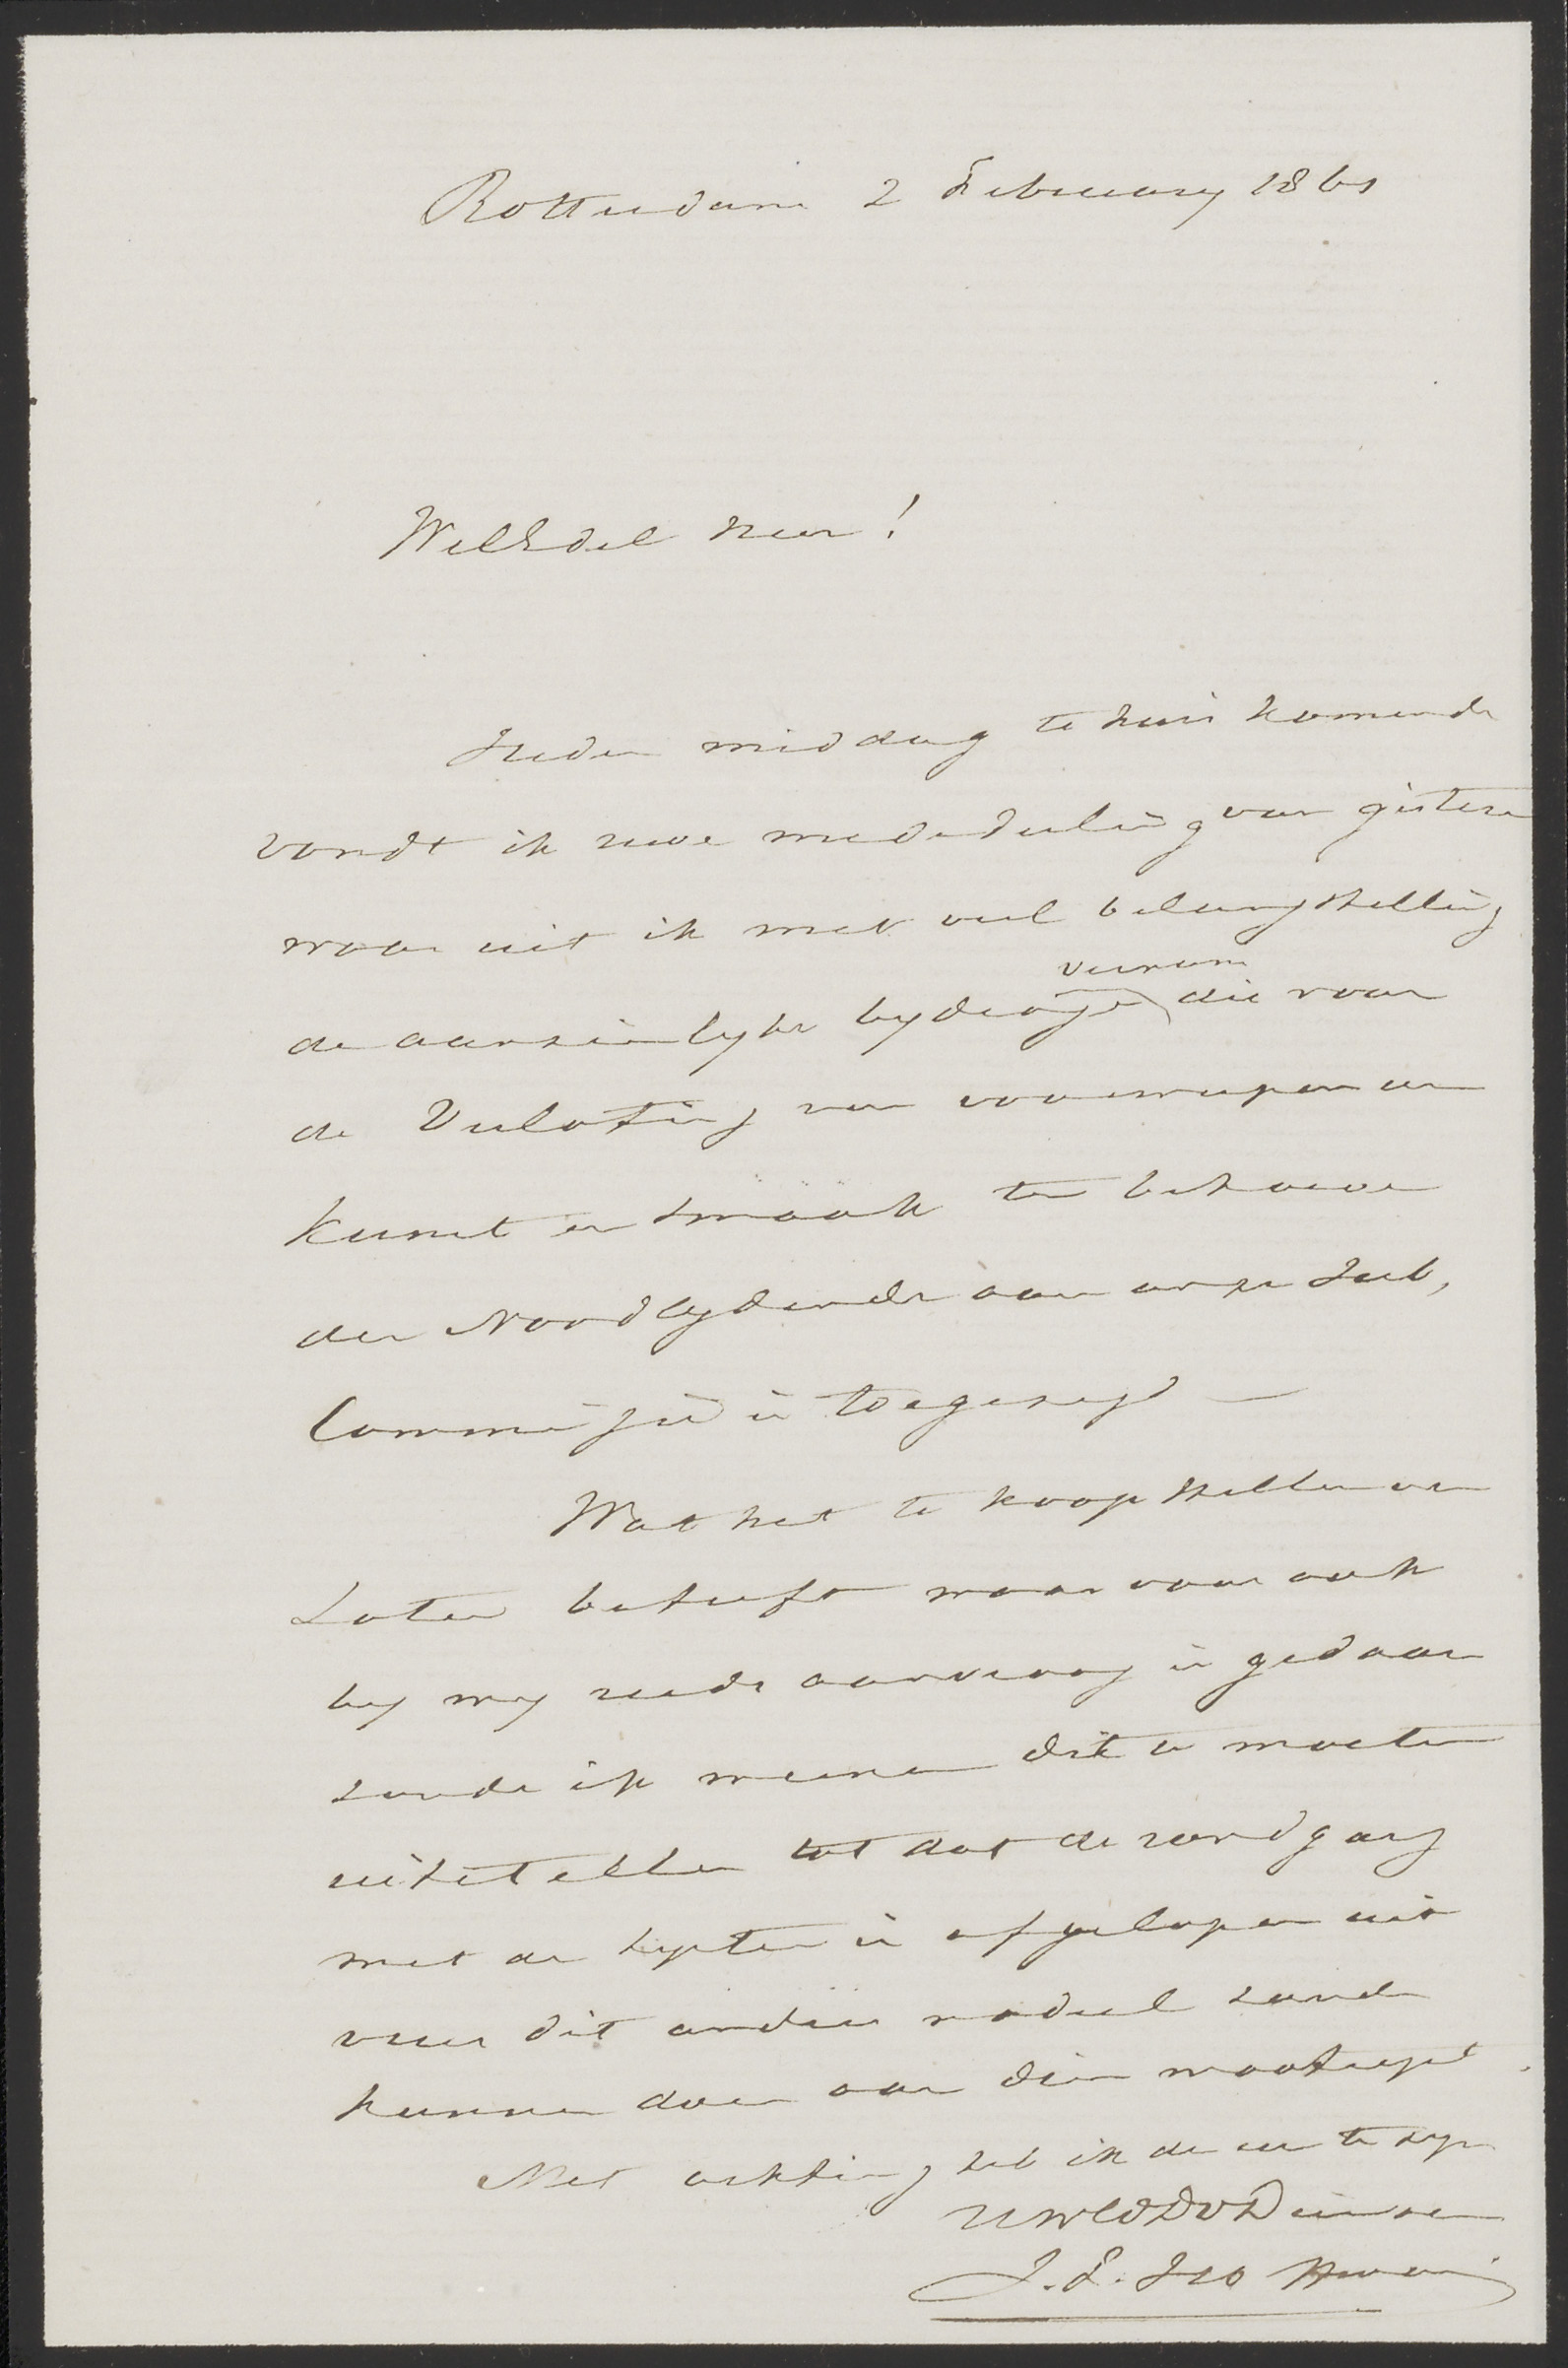 Rotterdam 2 February 1861
WelEdel Heer!
Heden middag te huis komende
vondt ik uwe mededeeling van gisteren
waar uit ik met veel belangstelling
vernam
de aanzienlyke bydragen die voor
de Verloting van voorwerpen van
Kunst en smaak ten behoeve
der Noodlydende aan onze Sub,
Commissie is toegezegd —
Wat het te koop stellen van
Loten betreft waar voor ook
by my reeds aanvraag is gedaan
zoude ik meenen dit te moeten
uitstellen tot dat de rondgang
met de lysten is afgelopen uit
vrees dit anders nadeel zoude
kunnen doen aan dien maatregel.
Met achting heb ik de eer te zyn
UWEDDWDienaar